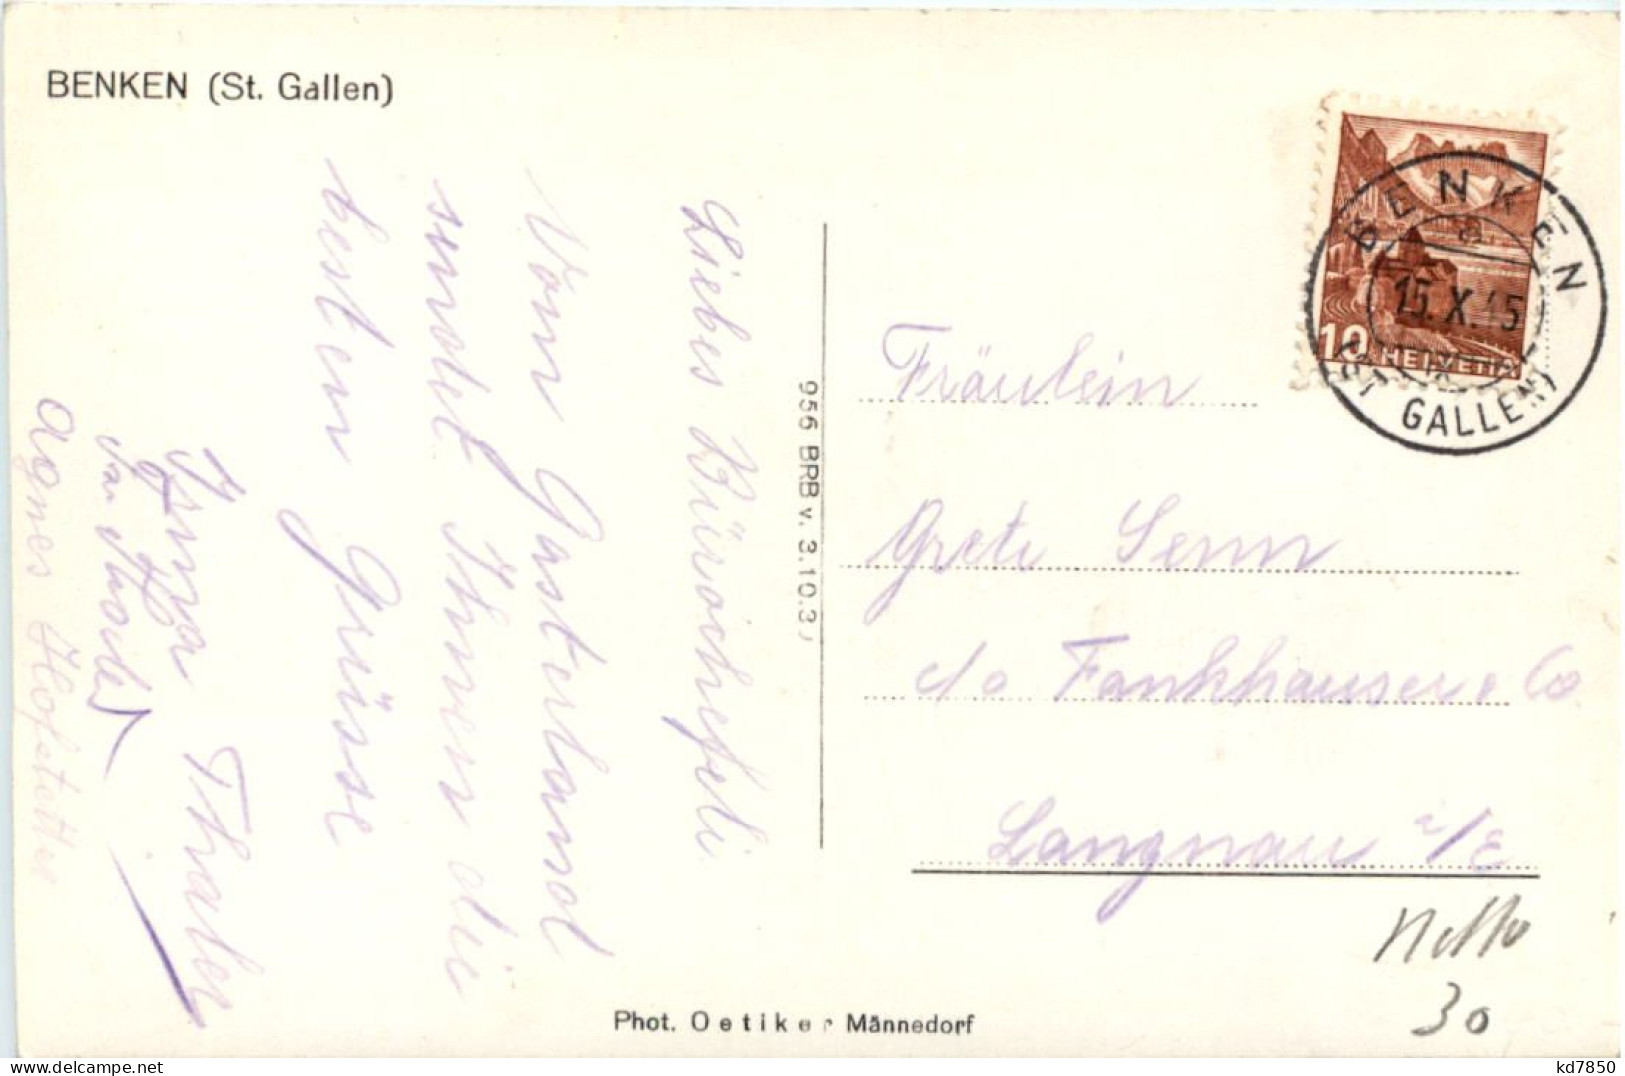 BENKEN (St. Gallen)
Liebes Bürochefeli
Vom Gasterland
sendet Ihnen die
besten Grüsse
Irma Thaler
Agnes Hofstetter
956 BRB v. 3.10.3
BENKEN
a
15.X.45
(ST GALLEN)
10 HELVETIA
Fräulein
Greti Senn
c/o Fankhauser & Co
Langnau i/E
Netto
30
Phot. Oetiker Männedorf
kd7850